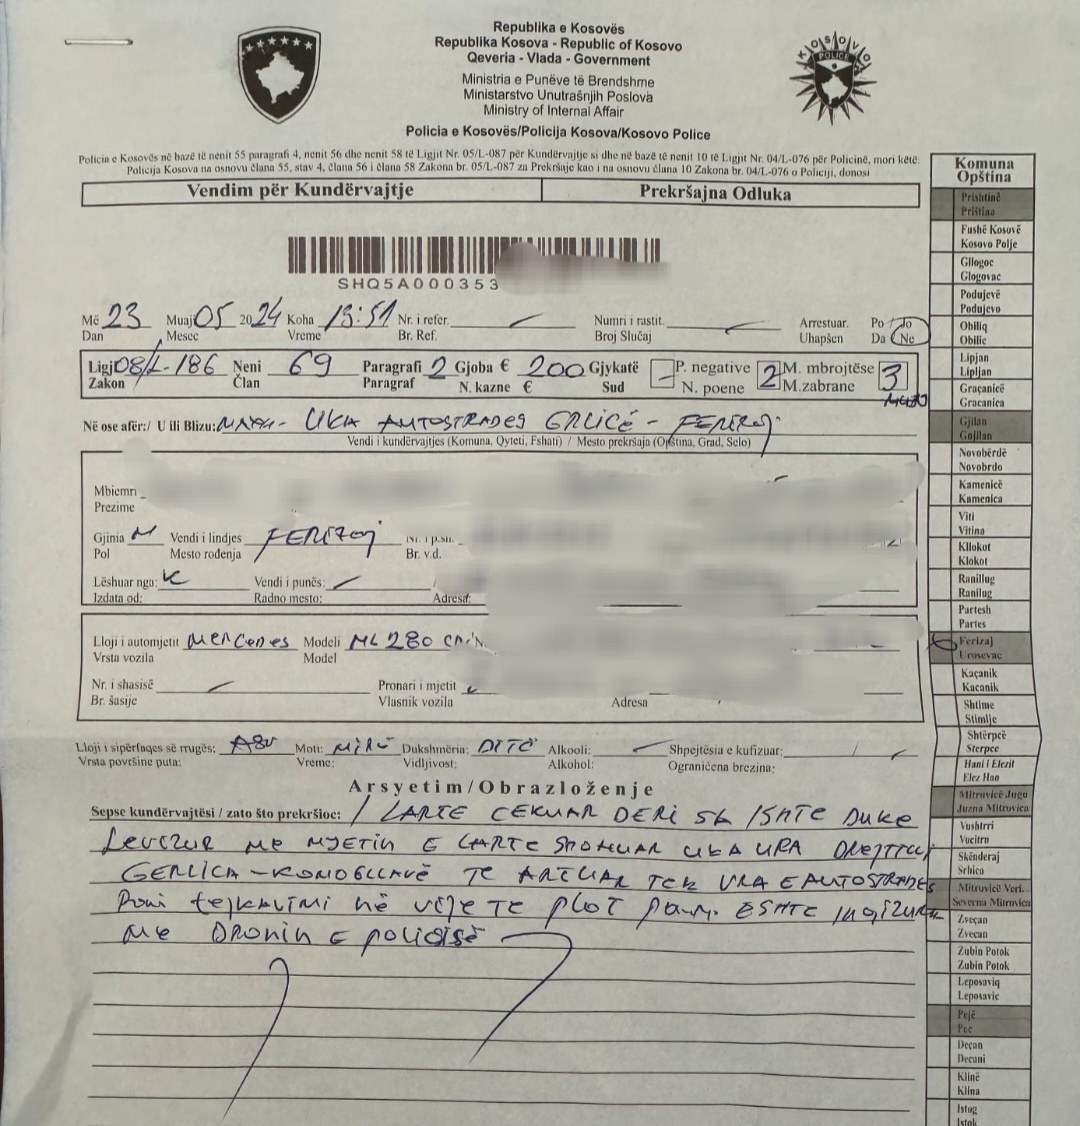 KOSOVO
POLICE
Republika e Kosovës
Republika Kosova - Republic of Kosovo
Qeveria - Vlada - Government
Ministria e Punëve të Brendshme
Ministarstvo Unutrašnjih Poslova
Ministry of Internal Affair
Policia e Kosovës/Policija Kosova/Kosovo Police
Policia e Kosovës në bazë të nenit 55 paragrafi 4, nenit 56 dhe nenit 58 të Ligjit Nr. 05/L-087 për Kundërvajtje si dhe në bazë të nenit 10 të Ligjit Nr. 04/L-076 për Policinë, mori këtë.
Policija Kosova na osnovu člana 55, stav 4, člana 56 i člana 58 Zakona br. 05/L-087 za Prekršaje kao i na osnovu člana 10 Zakona br. 04/L-076 o Policiji, donosi
Vendim për Kundërvajtje Prekršajna Odluka
SHQ5A000353
Më 23 Muaj 05 2024 Koha 13:51 Nr. i refer. Numri i rastit. Arrestuar. Po Jo
Dan Mesec Vreme Br. Ref. Broj Slučaj Uhapšen Da Ne
Ligji 08/L-186 Neni 69 Paragrafi 2 Gjoba € 200 Gjykatë P. negative 2 M. mbrojtëse 3
Zakon Član Paragraf N. kazne € Sud N. poene M.zabrane
Në ose afër:/ U ili Blizu: URA AUTOSTRADES GRLICË - FERIZAJ
Vendi i kundërvajtjes (Komuna, Qyteti, Fshati) / Mesto prekršaja (Opština, Grad, Selo)
Mbiemri
Prezime
Gjinia M Vendi i lindjes FERIZAJ
Pol Mesto rođenja Br. v.d.
Lëshuar nga: K Vendi i punës: Adresa:
Izdata od: Radno mesto:
Lloji i automjetit MERCEDES Modeli ML 280 CDI
Vrsta vozila Model
Nr. i shasisë Pronari i mjetit
Br. šasije Vlasnik vozila Adresa
Lloji i sipërfaqes së rrugës: ASF Moti: MIRË Dukshmëria: DITË Alkooli: Shpejtësia e kufizuar:
Vrsta površine puta: Vreme: Vidljivost: Alkohol: Ograničena brezina:
Arsyetim/Obrazloženje
Sepse kundërvajtësi / zato što prekršioc: I LARTE CEKUAR DERI SA ISHTE DUKE
LEVIZUR ME MJETIN E LARTE SHENUAR URA DREJTTU
GERLICA - KOMOGLLAVË TE ARITUAR TEK URA E AUTOSTRADES
Beni tejkalimi në vije te plot ESHTE INQIZUAR
ME DRONIN E POLICISË
Komuna
Opština
Prishtinë
Priština
Fushë Kosovë
Kosovo Polje
Gllogoc
Glogovac
Podujevë
Podujevo
Obiliq
Obilic
Lipjan
Lipljan
Graçanicë
Gracanica
Gjilan
Gnjilan
Novobërdë
Novobrdo
Kamenicë
Kamenica
Viti
Vitina
Kllokot
Klokot
Ranillug
Ranilug
Partesh
Partes
Ferizaj
Urosevac
Kaçanik
Kacanik
Shtime
Stimlje
Shtërpcë
Sterpce
Hani i Elezit
Elez Han
Mitrovicë Jugu
Juzna Mitrovica
Vushtrri
Vucitrn
Skënderaj
Srbica
Mitrovicë Veri.
Severna Mitrovica
Zveçan
Zvecan
Zubin Potok
Zubin Potok
Leposaviq
Leposavic
Pejë
Pec
Deçan
Decani
Klinë
Klina
Istog
Istok